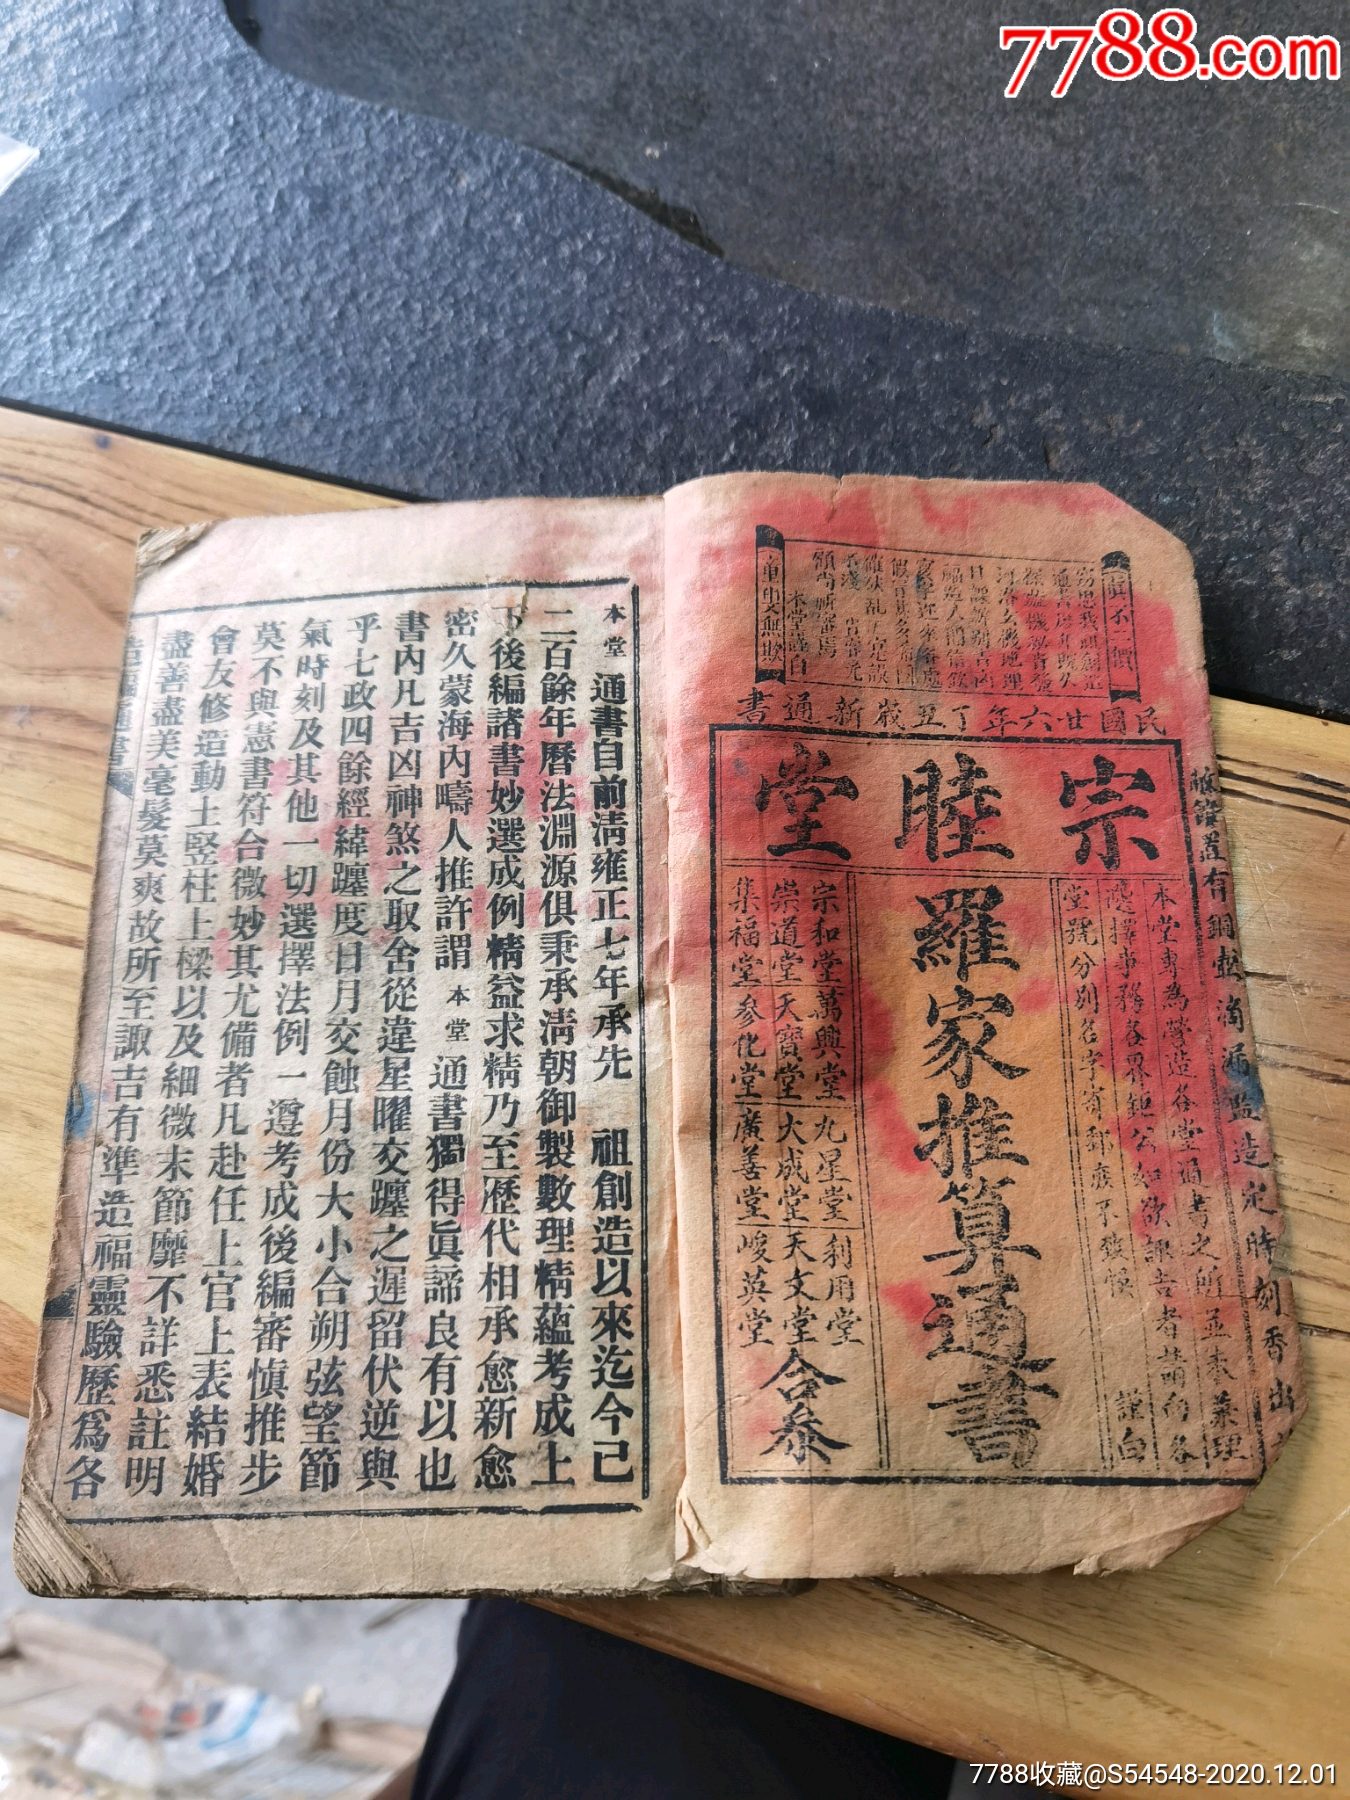 7788.com
真不二價
童叟無欺
民國廿六年丁丑歲新通書
宗睦堂
羅家推算通書
敝館置有銅壺滴漏監造定時刻香出
本堂專為營造各堂通書之所並代兼理
選擇事務各界鉅公如欲諏吉者請向各
堂號分別名字寄郵庶不致悞 謹白
宗和堂萬興堂九星堂利用堂
崇道堂天寶堂大成堂天文堂
集福堂參化堂廣善堂峻英堂
合參
本堂通書自前清雍正七年承先 祖創造以來迄今已
二百餘年曆法淵源俱秉承清朝御製數理精蘊考成上
下後編諸書妙選成例精益求精乃至歷代相承愈新愈
密久蒙海內疇人推許謂 本堂 通書獨得眞諦良有以也
書內凡吉凶神煞之取舍從違星曜交躔之遲留伏逆與
乎七政四餘經緯躔度日月交蝕月份大小合朔弦望節
氣時刻及其他一切選擇法例一遵考成後編審慎推步
莫不與憲書符合微妙其尤備者凡赴任上官上表結婚
會友修造動土竪柱上樑以及細微末節靡不詳悉註明
盡善盡美毫髮莫爽故所至諏吉有準造福靈驗歷爲各
7788收藏@S54548-2020.12.01